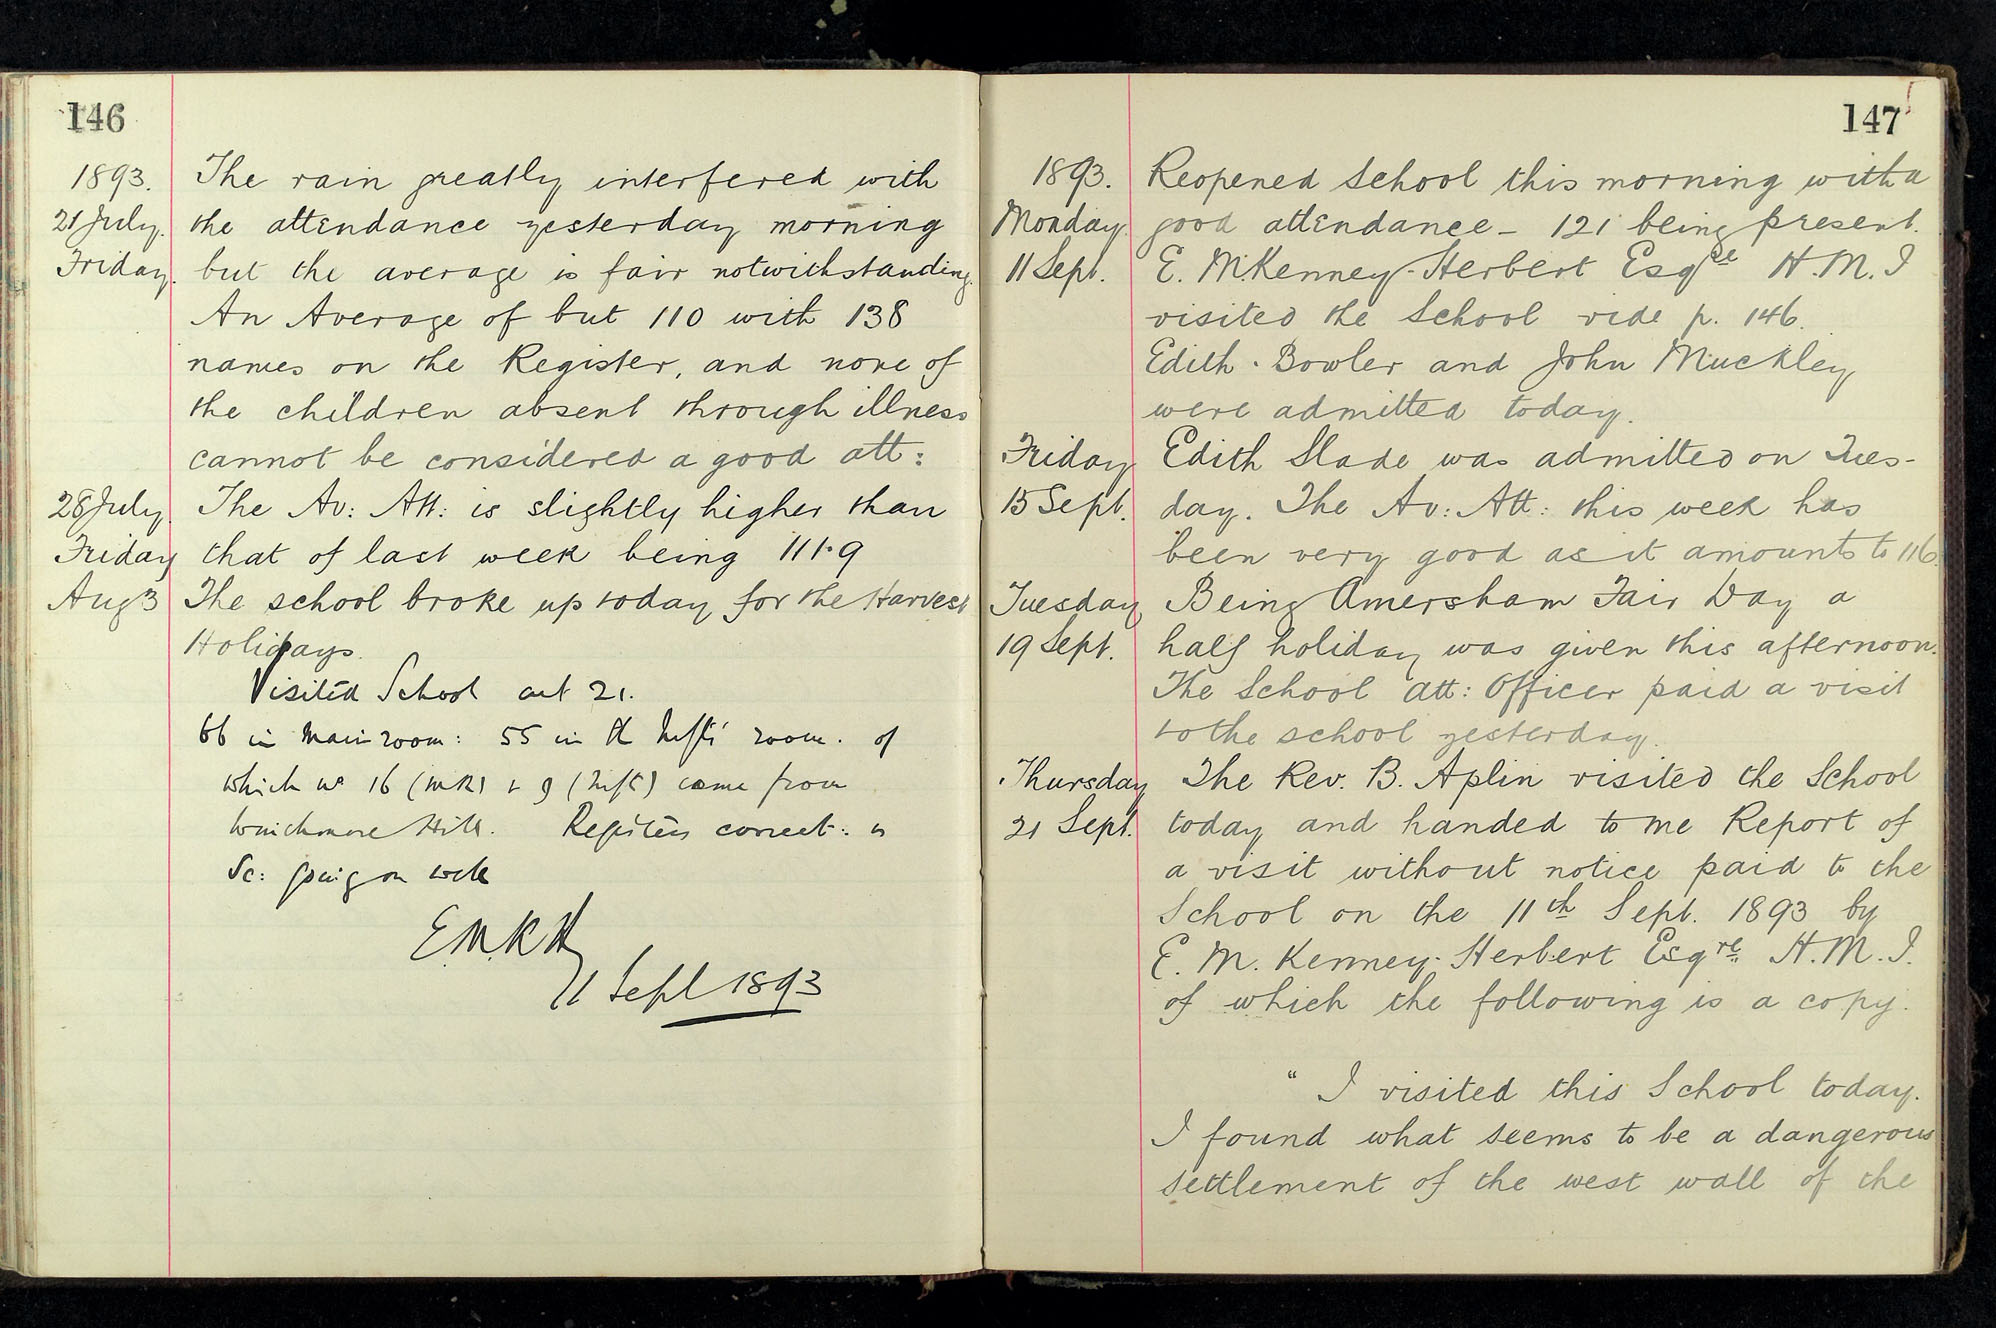 146
1893. The rain greatly interfered with
21 July. the attendance yesterday morning
Friday. but the average is fair notwithstanding.
An Average of but 110 with 138
names on the Register, and none of
the children absent through illness
cannot be considered a good att:
28 July. The Av: Att: is slightly higher than
Friday that of last week being 111.9
Aug 3 The school broke up today for the Harvest
Holidays.
Visited School at 21.
66 in main room: 55 in the Infts' room. of
which 16 (M.R) & 9 (Infts) come from
Winchmore Hill. Registers correct:
Sc: going on well
E.M.K.H
11 Sept 1893
147
1893. Reopened School this morning with a
Monday. good attendance - 121 being present.
11 Sept. E. M. Kenney-Herbert Esqre H.M.I
visited the School vide p. 146.
Edith Bowler and John Muckley
were admitted today.
Friday Edith Slade was admitted on Tues-
15 Sept. day. The Av: Att: this week has
been very good as it amounts to 116.
Tuesday Being Amersham Fair Day a
19 Sept. half holiday was given this afternoon.
The School Att: Officer paid a visit
to the school yesterday.
Thursday The Rev. B. Aplin visited the School
21 Sept. today and handed to me Report of
a visit without notice paid to the
School on the 11th Sept. 1893 by
E. M. Kenney-Herbert Esqre. H.M.I.
of which the following is a copy.
" I visited this School today.
I found what seems to be a dangerous
settlement of the west wall of the